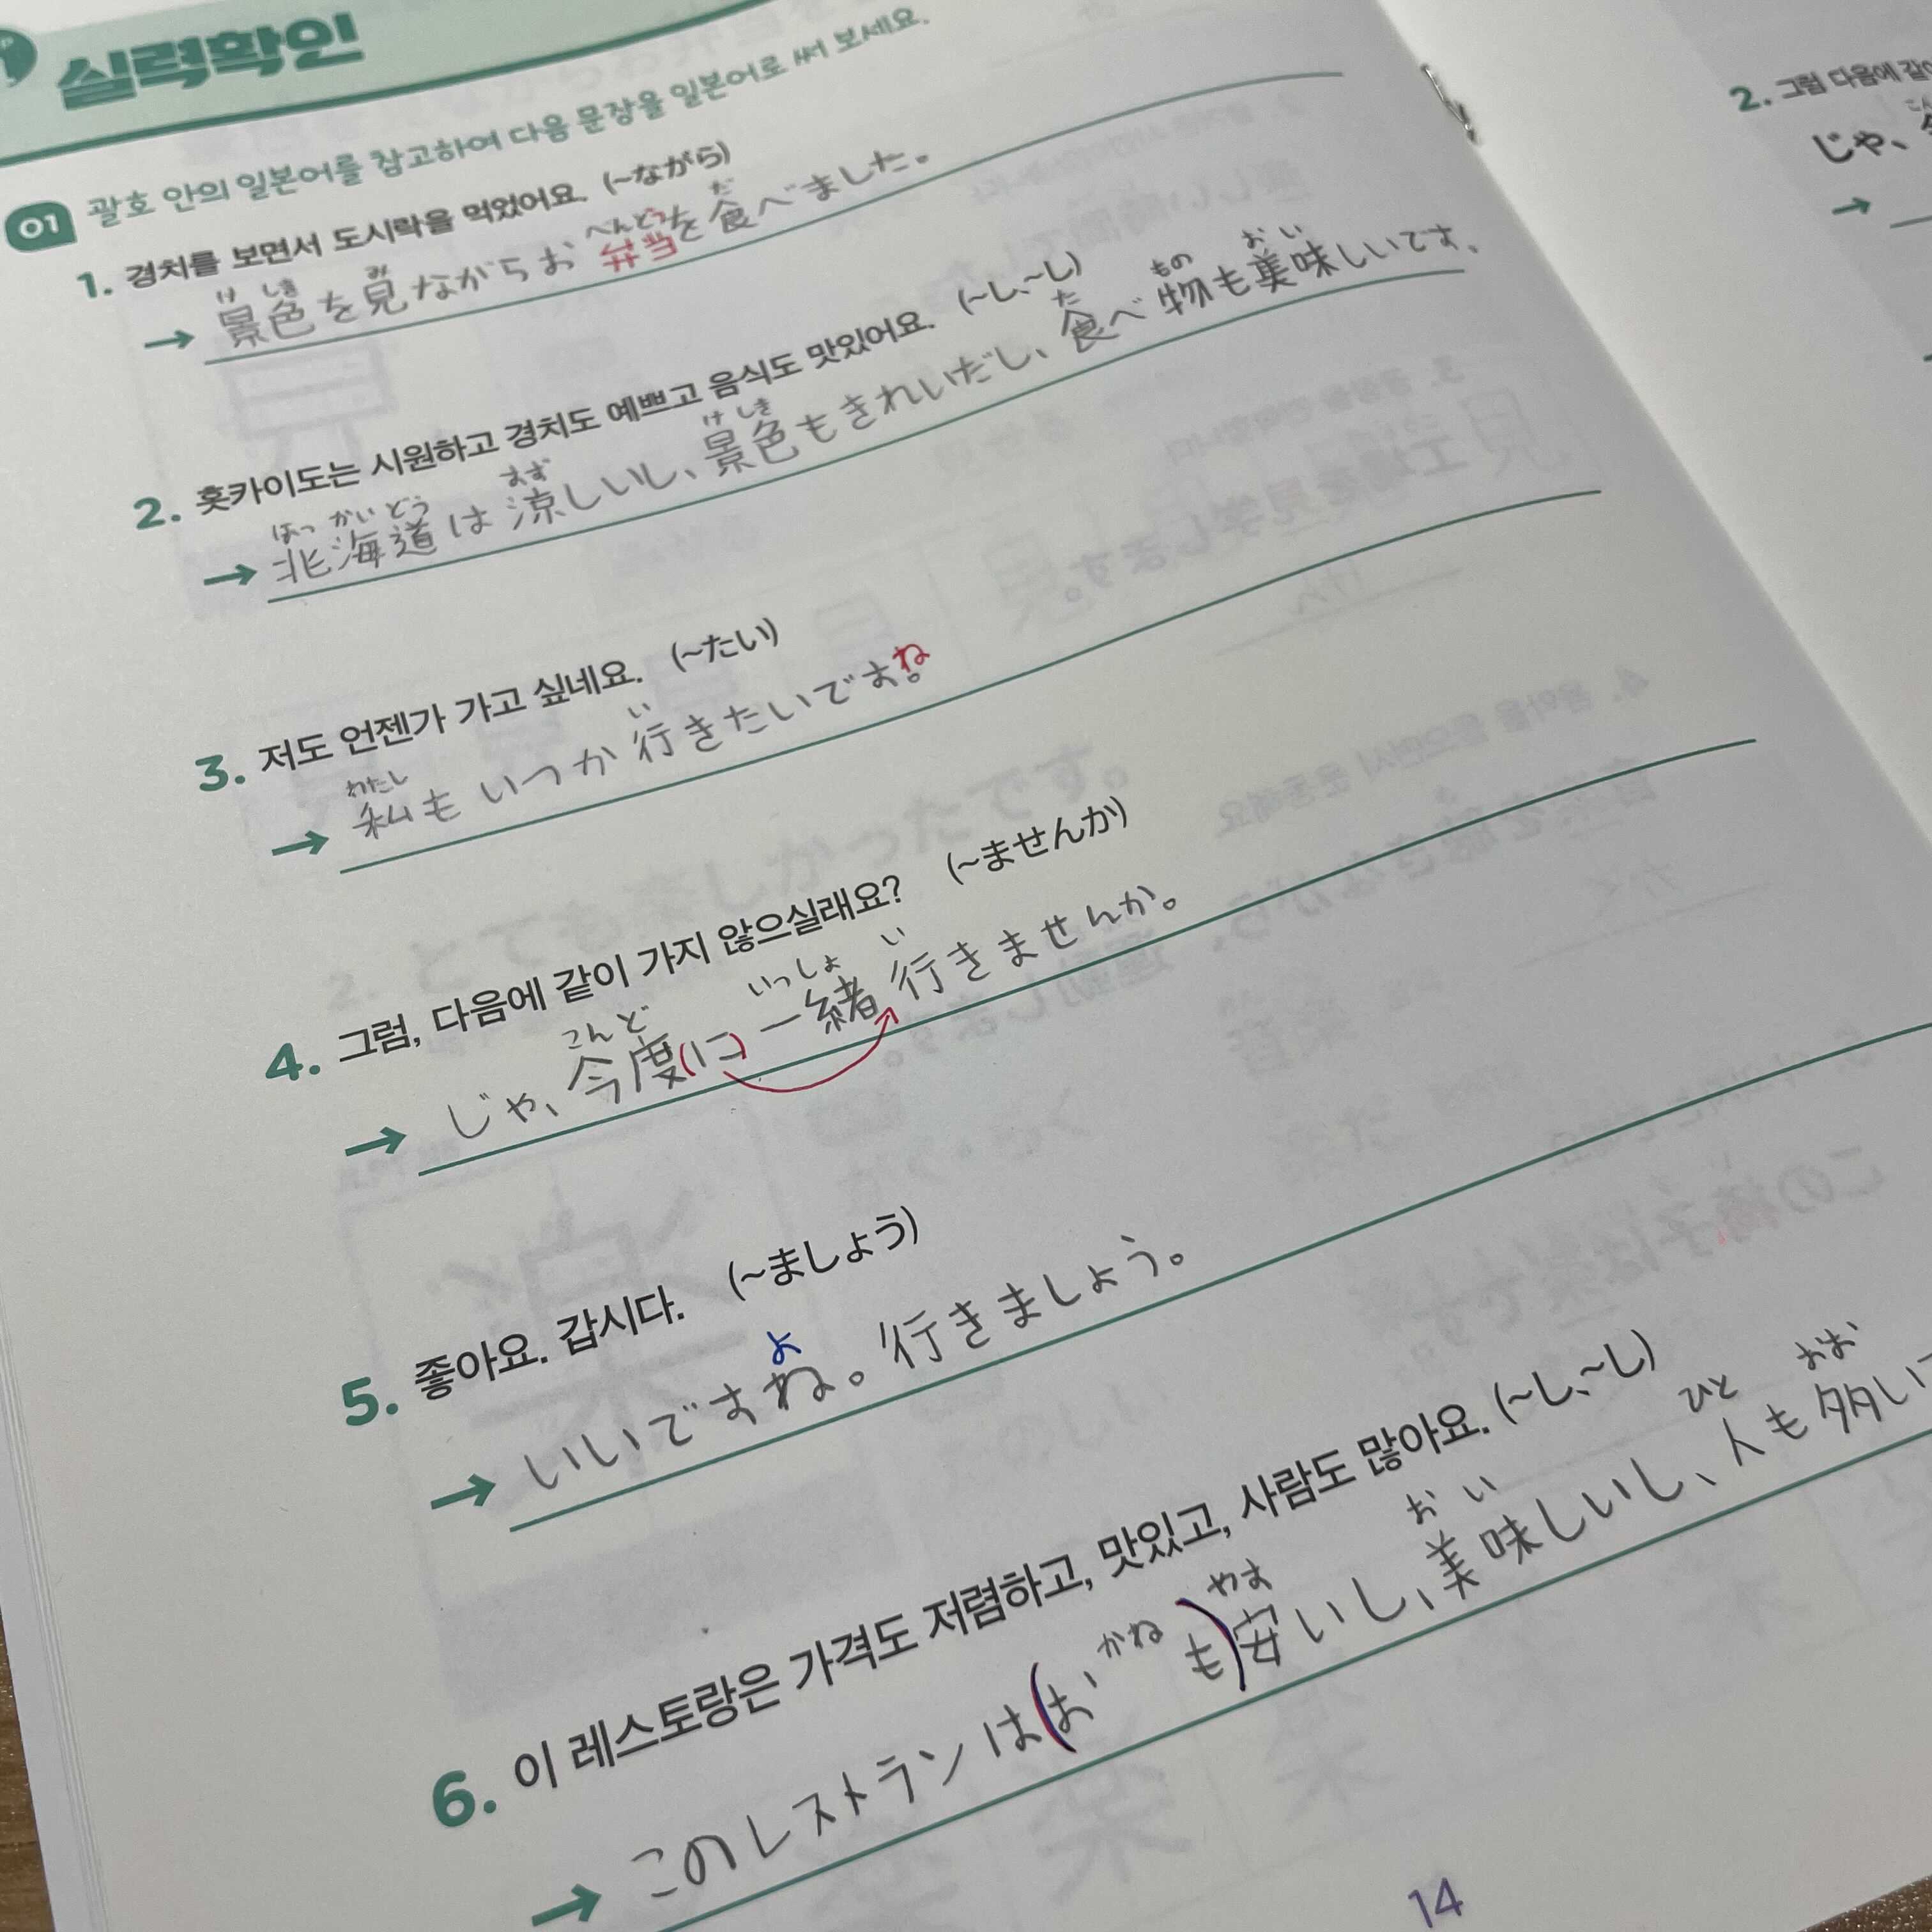 실력확인
01 괄호 안의 일본어를 참고하여 다음 문장을 일본어로 써 보세요.
1. 경치를 보면서 도시락을 먹었어요. (~ながら)
け しき み べんとう だ
→ 景色を見ながらお弁当を食べました。
2. 홋카이도는 시원하고 경치도 예쁘고 음식도 맛있어요. (~し、~し)
ほっ かい どう すず け しき た もの おい
→ 北海道は涼しいし、景色もきれいだし、食べ物も美味しいです。
3. 저도 언젠가 가고 싶네요. (~たい)
わたし い
→ 私もいつか行きたいですね。
4. 그럼, 다음에 같이 가지 않으실래요? (~ませんか)
こんど いっしょ い
→ じゃ、今度(に)一緒行きませんか。
5. 좋아요. 갑시다. (~ましょう)
よ
→ いいですね。行きましょう。
6. 이 레스토랑은 가격도 저렴하고, 맛있고, 사람도 많아요. (~し、~し)
かね やす おい ひと おお
→ このレストランは(お も)安いし、美味しいし、人も多い
14
2. 그럼 다음에 같이
じゃ、
→